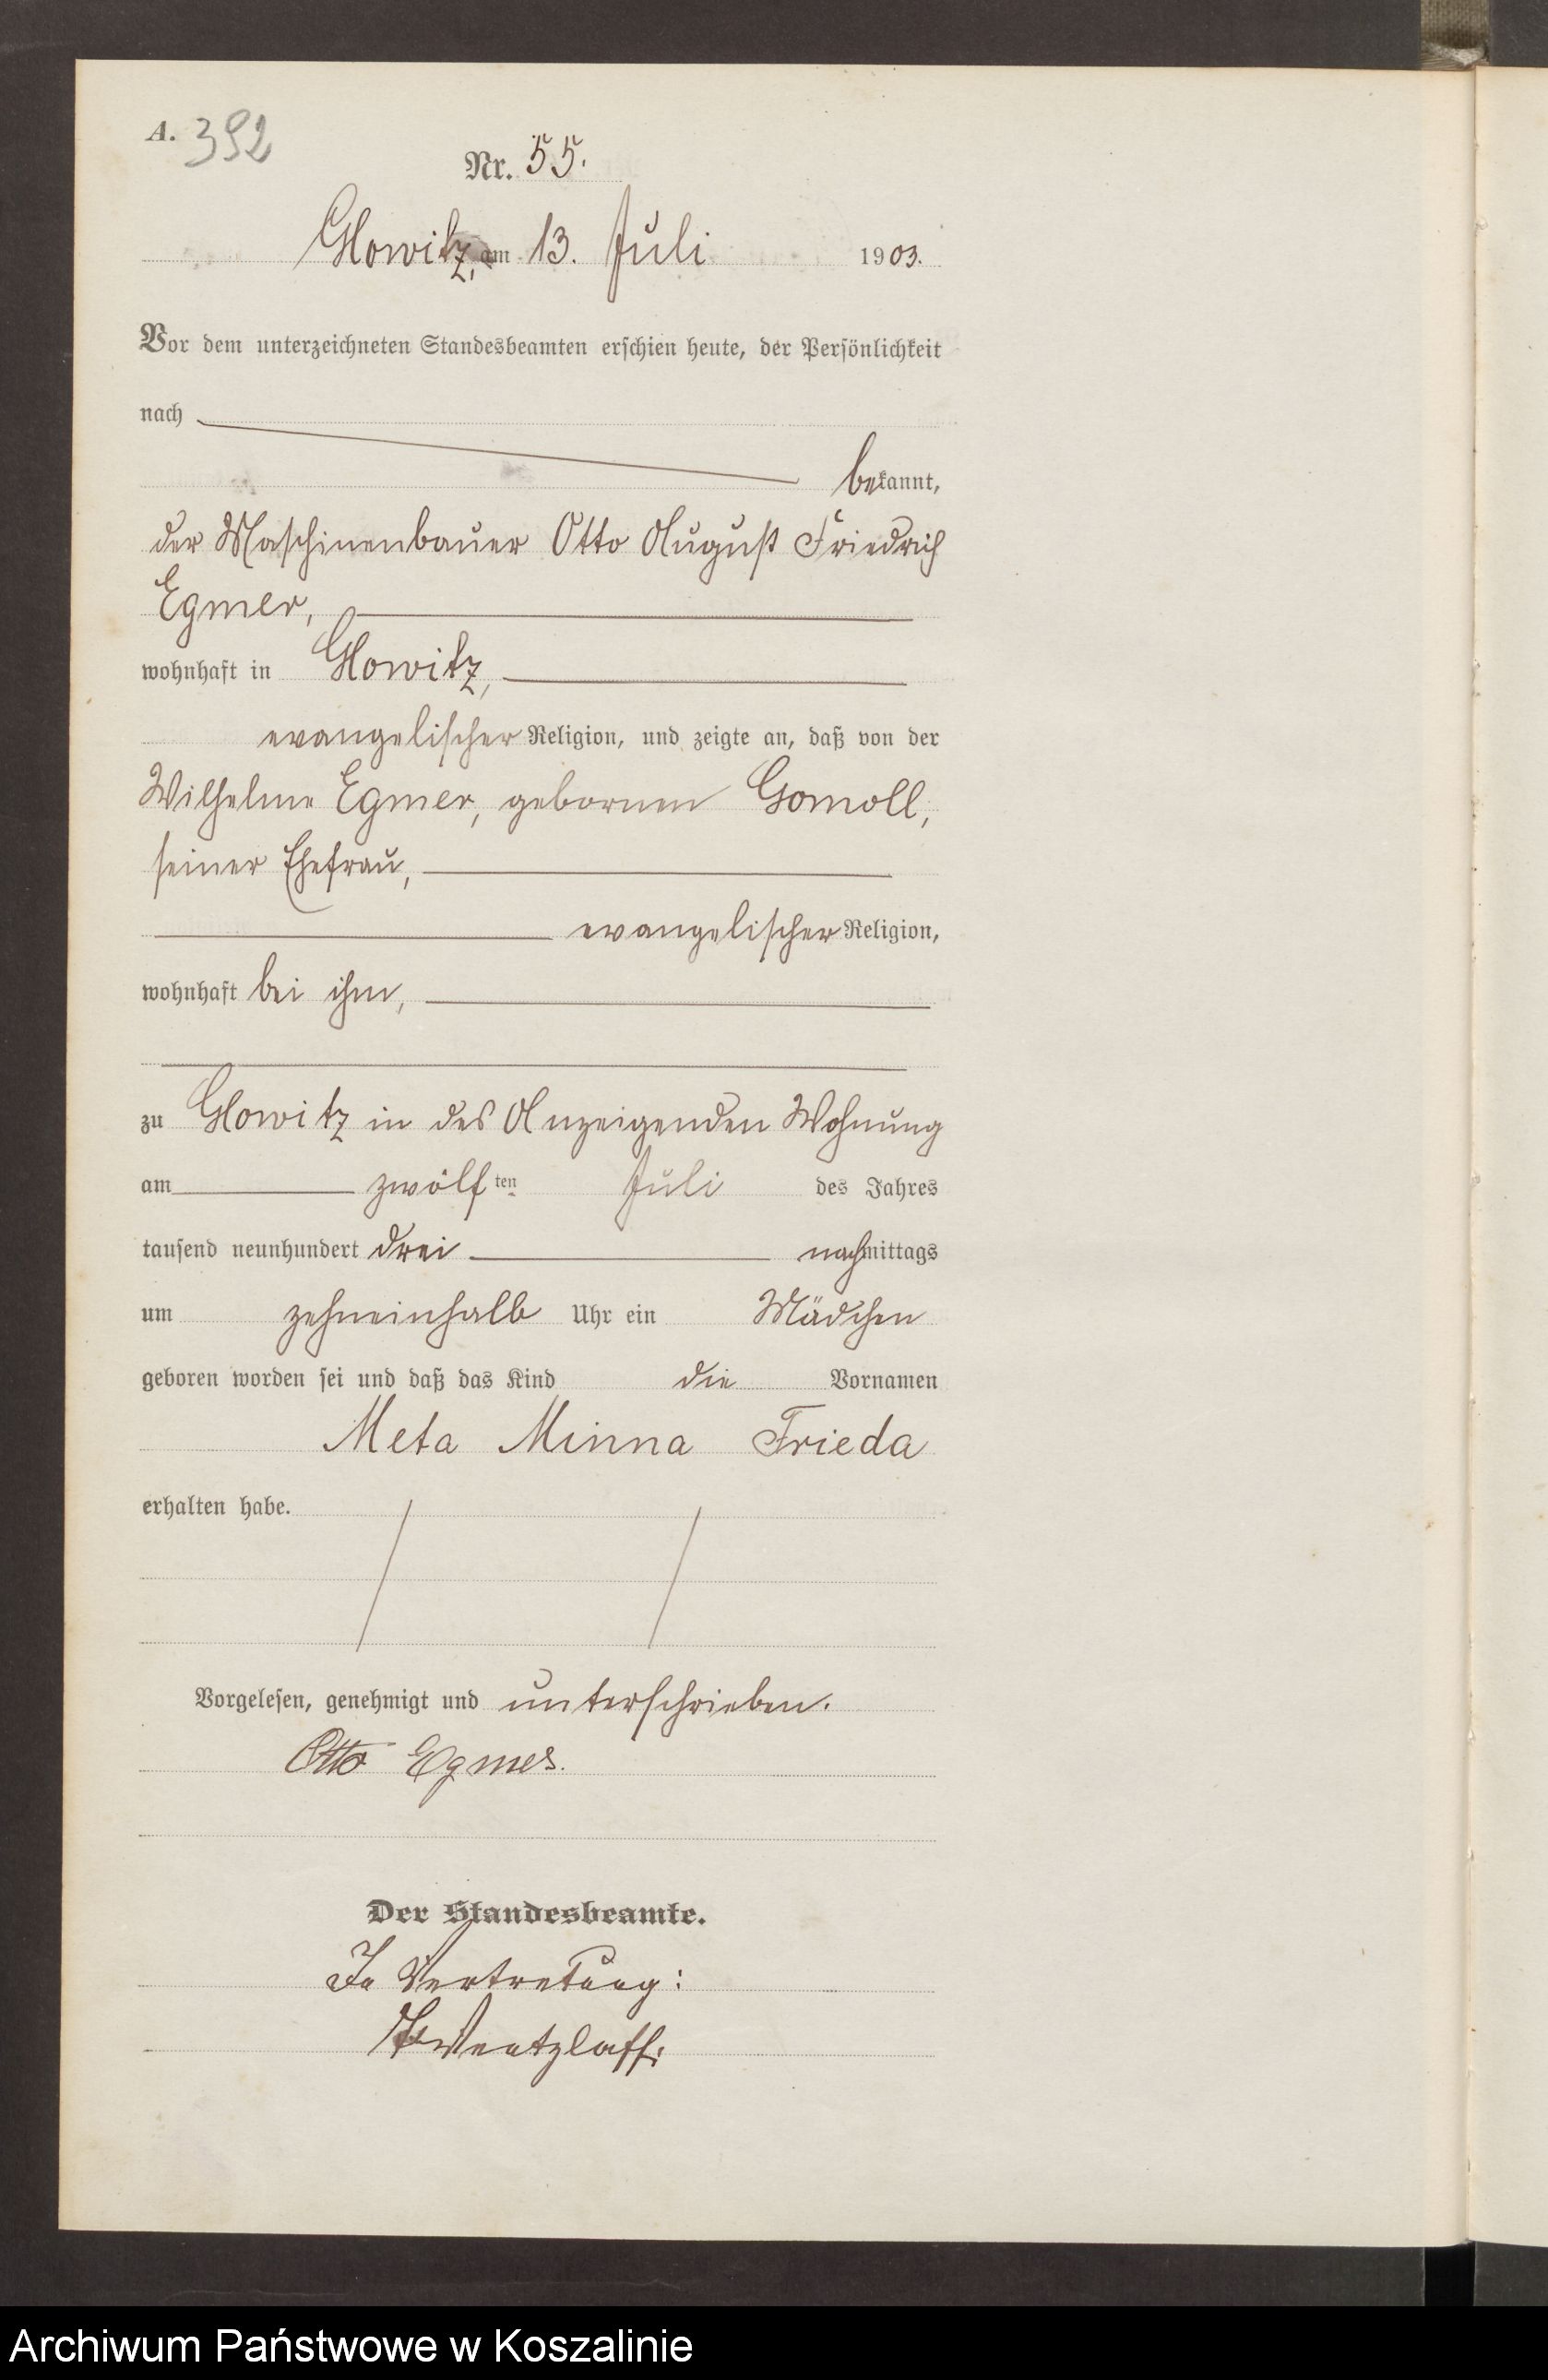 A. 392
Nr. 55.
Glowitz, am 13. Juli 1903.
Vor dem unterzeichneten Standesbeamten erschien heute, der Persönlichkeit
nach
bekannt,
der Maschinenbauer Otto August Friedrich
Egmer,
wohnhaft in Glowitz,
evangelischer Religion, und zeigte an, daß von der
Wilhelme Egmer, gebornen Gomoll,
seiner Ehefrau,
evangelischer Religion,
wohnhaft bei ihm,
zu Glowitz in des Anzeigenden Wohnung
am zwölften Juli des Jahres
tausend neunhundert drei nachmittags
um zehneinhalb Uhr ein Mädchen
geboren worden sei und daß das Kind die Vornamen
Meta Minna Frieda
erhalten habe.
Vorgelesen, genehmigt und unterschrieben.
Otto Egmer.
Der Standesbeamte.
In Vertretung:
Wentzlaff.
Archiwum Państwowe w Koszalinie